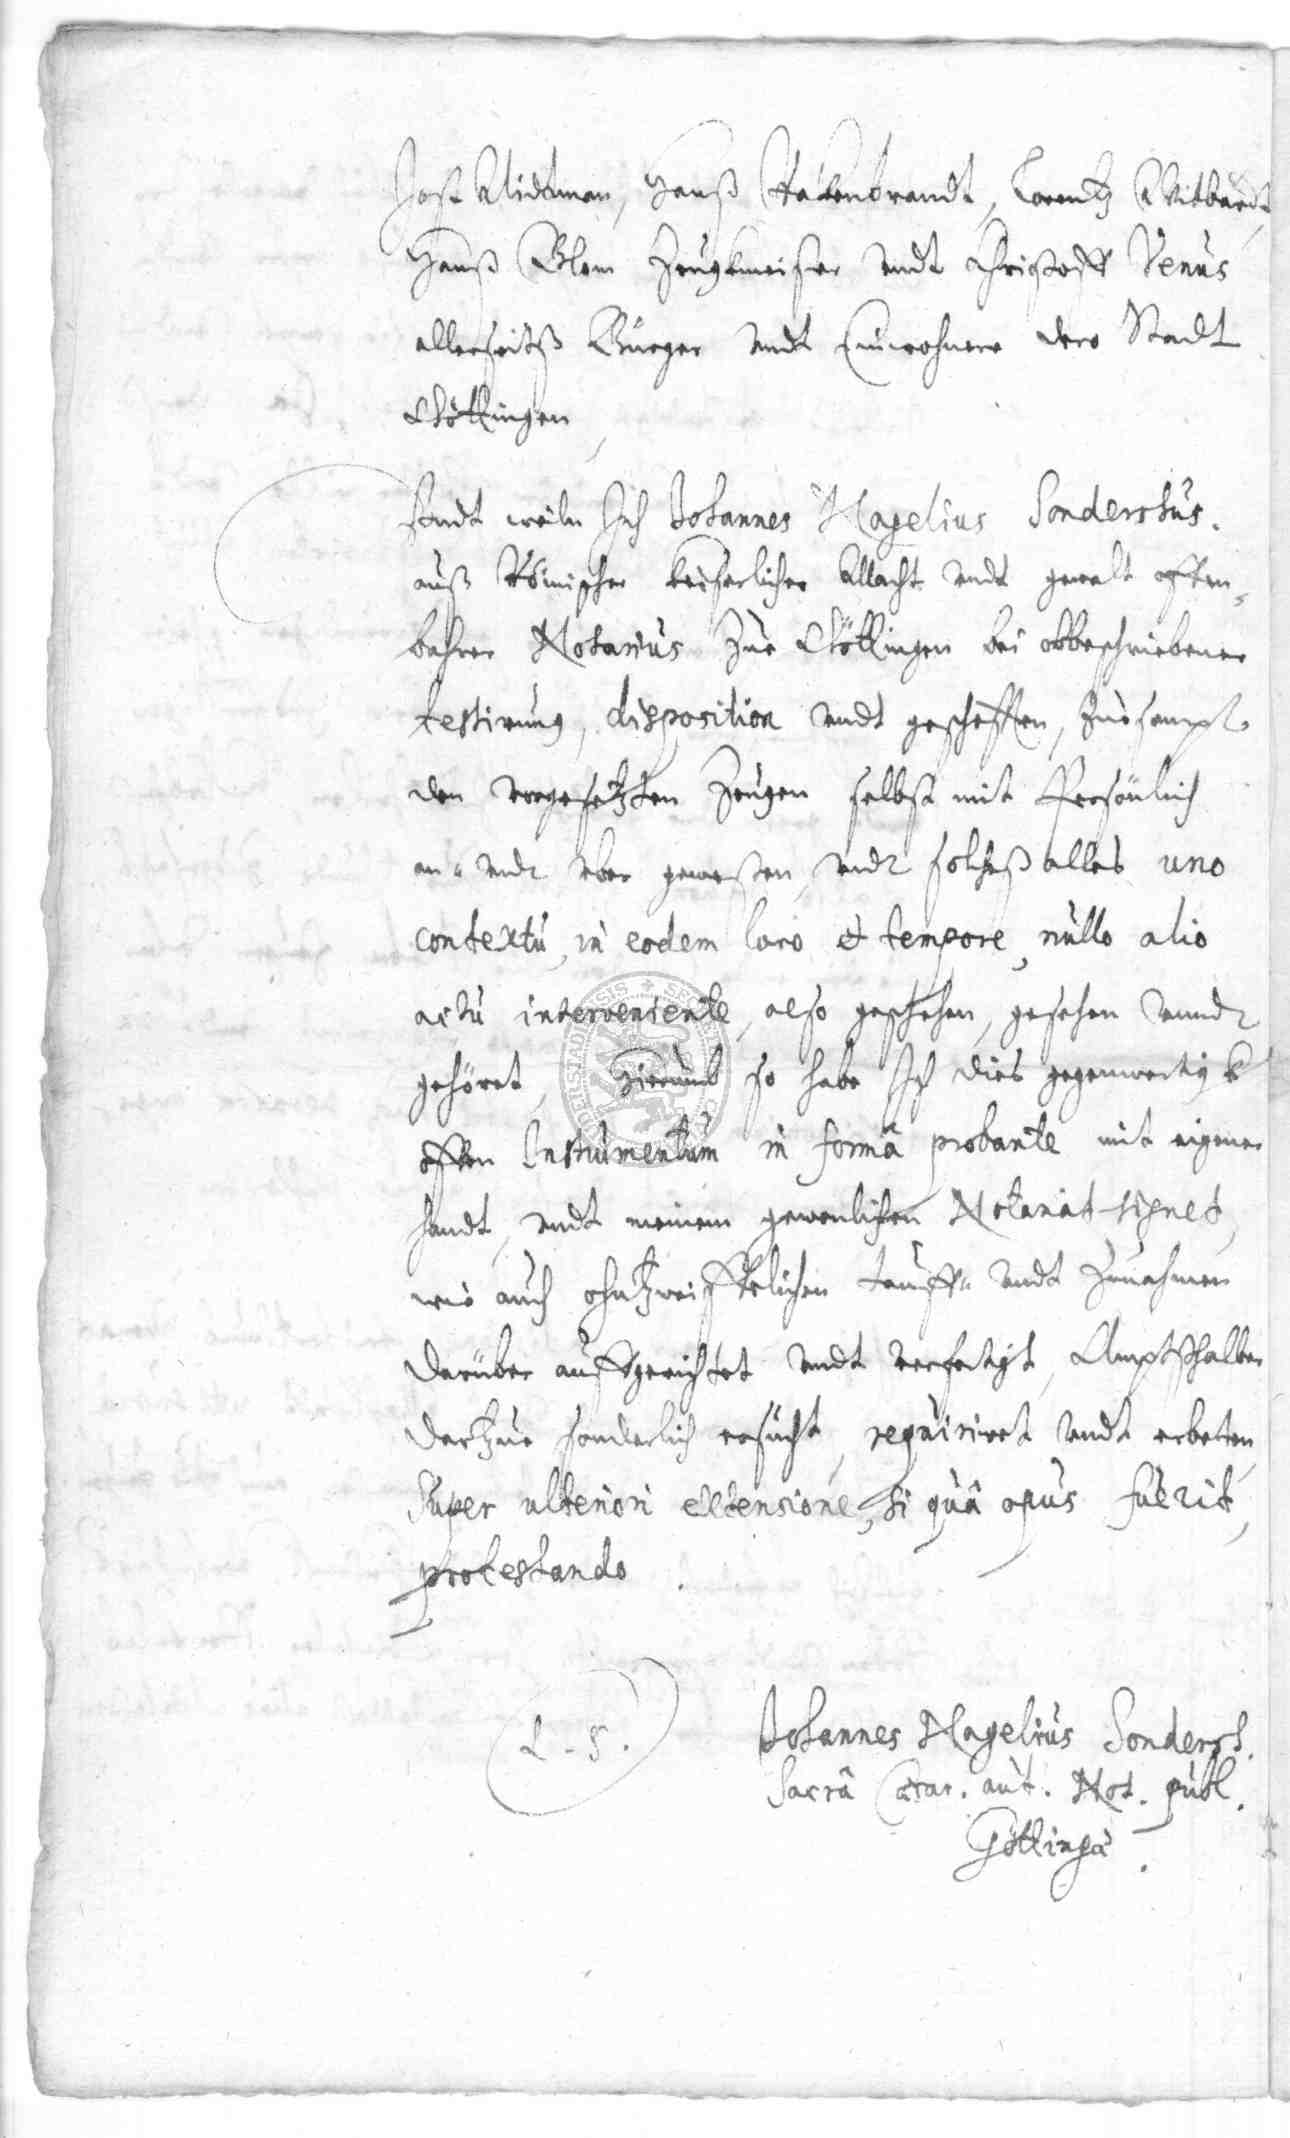 Jost Widtman, Hanß Rakenbrandt, Lorentz Witbardt,
Hanß Blom Zeugkmeister undt Christoff Venus
allerseitß Bürger undt Einwohnere dero Stadt
Göttingen,
Undt weiln Ich Johannes Nagelius Sondershus.
auß Römischer keiserlicher Macht undt gewalt offen-
bahrer Notarius zue Göttingen bei obbeschriebener
testirung, disposition undt gescheften, zuesampt
den vorgesetzten Zeugen selbst mit Persönlich
an- undt uber gewesen, undt solcheß alles uno
contextu, in eodem loco et tempore, nullo alio
actu interveniente, also geschehen, gesehen unndt
gehöret, Hierumb so habe Ich dies gegenwertigk
offen Instrumentum in formâ probante mit eigener
handt, undt meinem gewonlichen Notariat-signet,
wie auch ohnzweiffelichen tauff- undt Zunahmen
darüber auffgerichtet undt verfertigt, Amptßhalber
dartzue sonderlich ersucht, requiriret undt erbeten,
Super ulteriori extensione, si quâ opus fuerit,
protestando.
L. S.
Johannes Nagelius Sondersh.
Sacrâ Caesar. aut. Not. publ.
Göttingae.